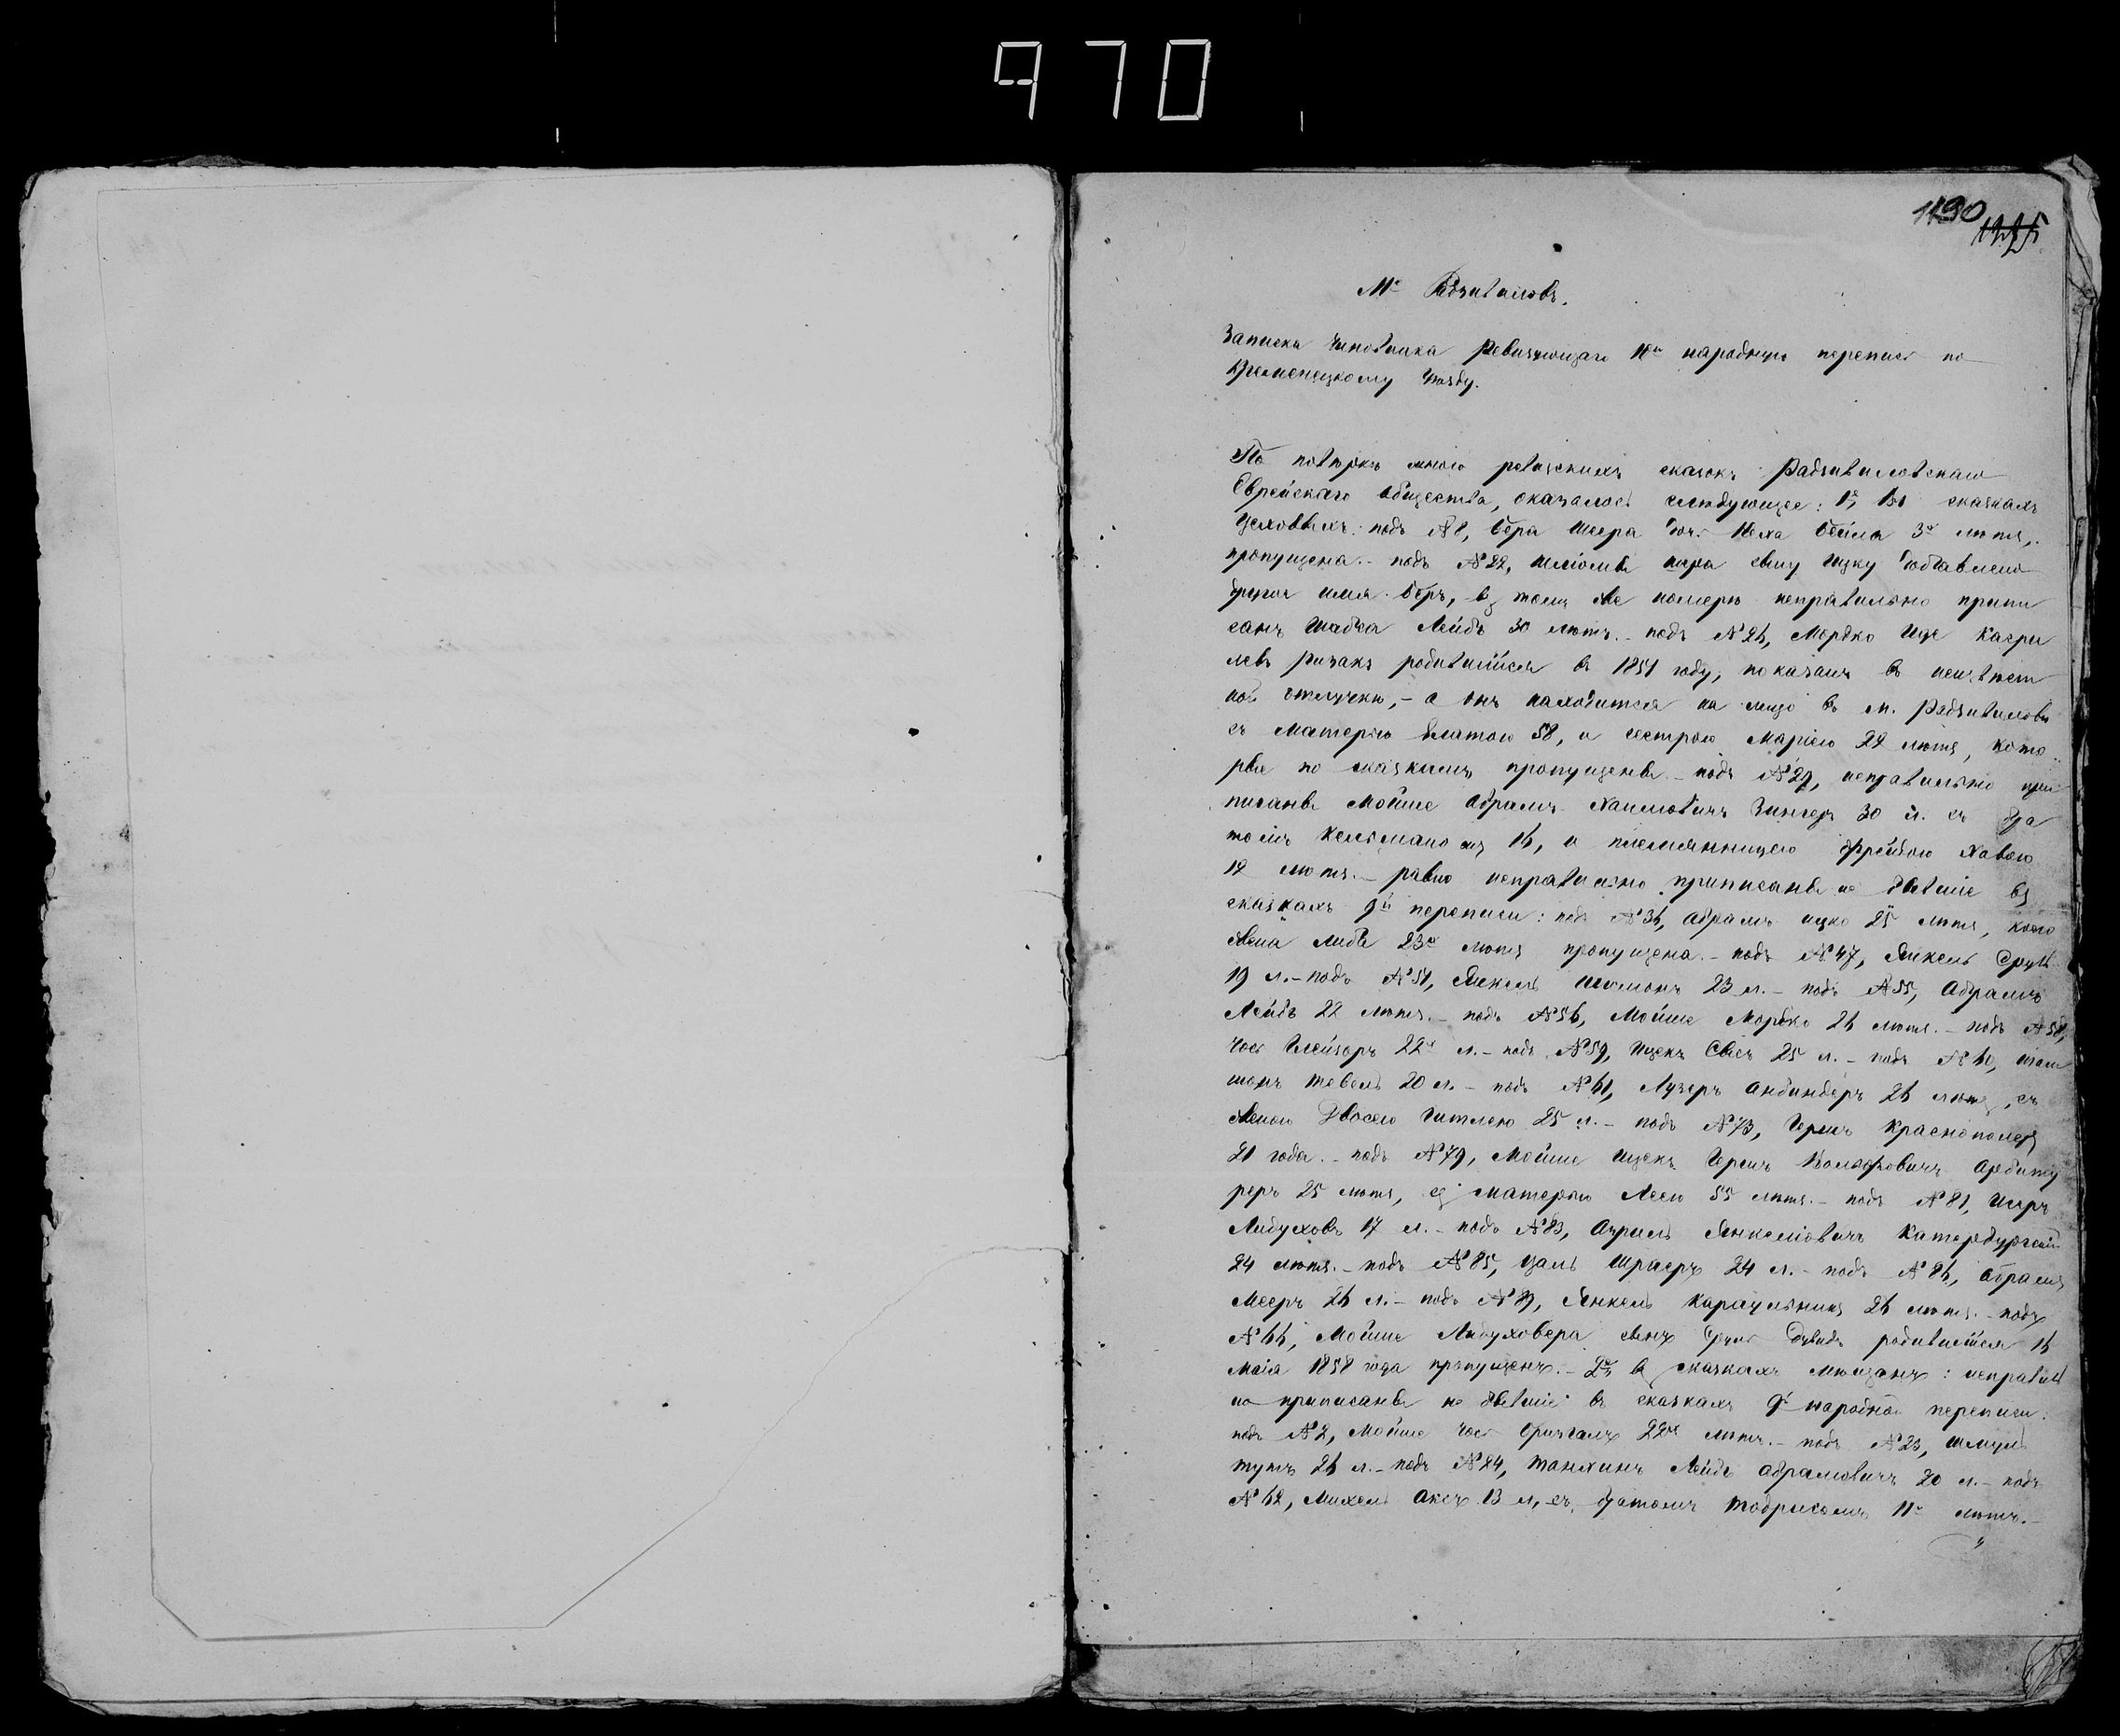 970
1190
1275
М. Радзивиловъ.
Записка Чиновника Ревизующаго 10ю народную перепись по
Кременецкому Уѣзду.
По повѣркѣ мною ревизскихъ сказокъ Радзивиловскаго
Еврейскаго общества, оказалось слѣдующее: 1, въ сказкахъ
подъ №8, Бера Шера дочь Неха Бейла 3х лѣтъ,
пропущена. - подъ №22, сыну Ицку добавлено
другое имя Беръ, въ томъ же номерѣ неправильно припи
санъ Лейбъ 30 лѣтъ. - подъ №26, Мордко Ице Касри
левъ Ризакъ родившійся въ 1851 году, показанъ въ неизвѣст
ной отлучкѣ, - а онъ находится на лицо въ м. Радзивиловѣ
съ матерью Златою 58, и сестрою Маріею 22 лѣтъ, кото
рые по сказкамъ пропущены. - подъ №29, неправильно при
писаны Мойше Абрамъ Хаимовичъ Зингеръ 30 л. съ бра
томъ Кельманомъ 16, и племянницею Фрейдою Хавою
12 лѣтъ. - равно неправильно приписаны не бывшіе въ
сказкахъ 9й переписи: подъ №36, Абрамъ Ицко 25 лѣтъ, коего
жена Либа 23х лѣтъ пропущена. - подъ №47, Янкель Сруль
19 л. - подъ №51, Янкель Шломонъ 23 л. - подъ №55, Абрамъ
Лейбъ 22 лѣтъ. - подъ №56, Мойше Мордко 26 лѣтъ. - подъ №58,
22х л. - подъ №59, Ицекъ 25 л. - подъ №60,
20 л. - подъ №61, Лузеръ Анбиндеръ 26 лѣтъ, съ
женою Двосею Гитлею 25 л. - подъ №73, Герцъ
21 года. - подъ №79, Мойше Ицекъ Герсъ Вольфовичъ
25 лѣтъ, съ матерью Леею 55 лѣтъ. - подъ №81,
Либуховъ 17 л. - подъ №83, Азриль Янкеліовичъ Катербургскій
24 лѣтъ. - подъ №85, 24 л. - подъ №86, Абрамъ
Мееръ 26 л. - подъ №89, Янкель Караульникъ 26 лѣтъ. - подъ
№66, Мойше Либуховера сынъ Дувидъ родившійся 16
Маія 1858 года пропущенъ. - 2, въ сказкахъ мѣщанъ: неправиль
но приписаны не бывшіе въ сказкахъ 9й народной переписи:
подъ №2, Мойше 22х лѣтъ. - подъ №23, Шмуль
26 л. - подъ №24, Танхинъ Лейбъ Абрамовичъ 20 л. - подъ
№62, Михель Аксъ 13 л., съ братомъ Тодрисомъ 11 лѣтъ. -